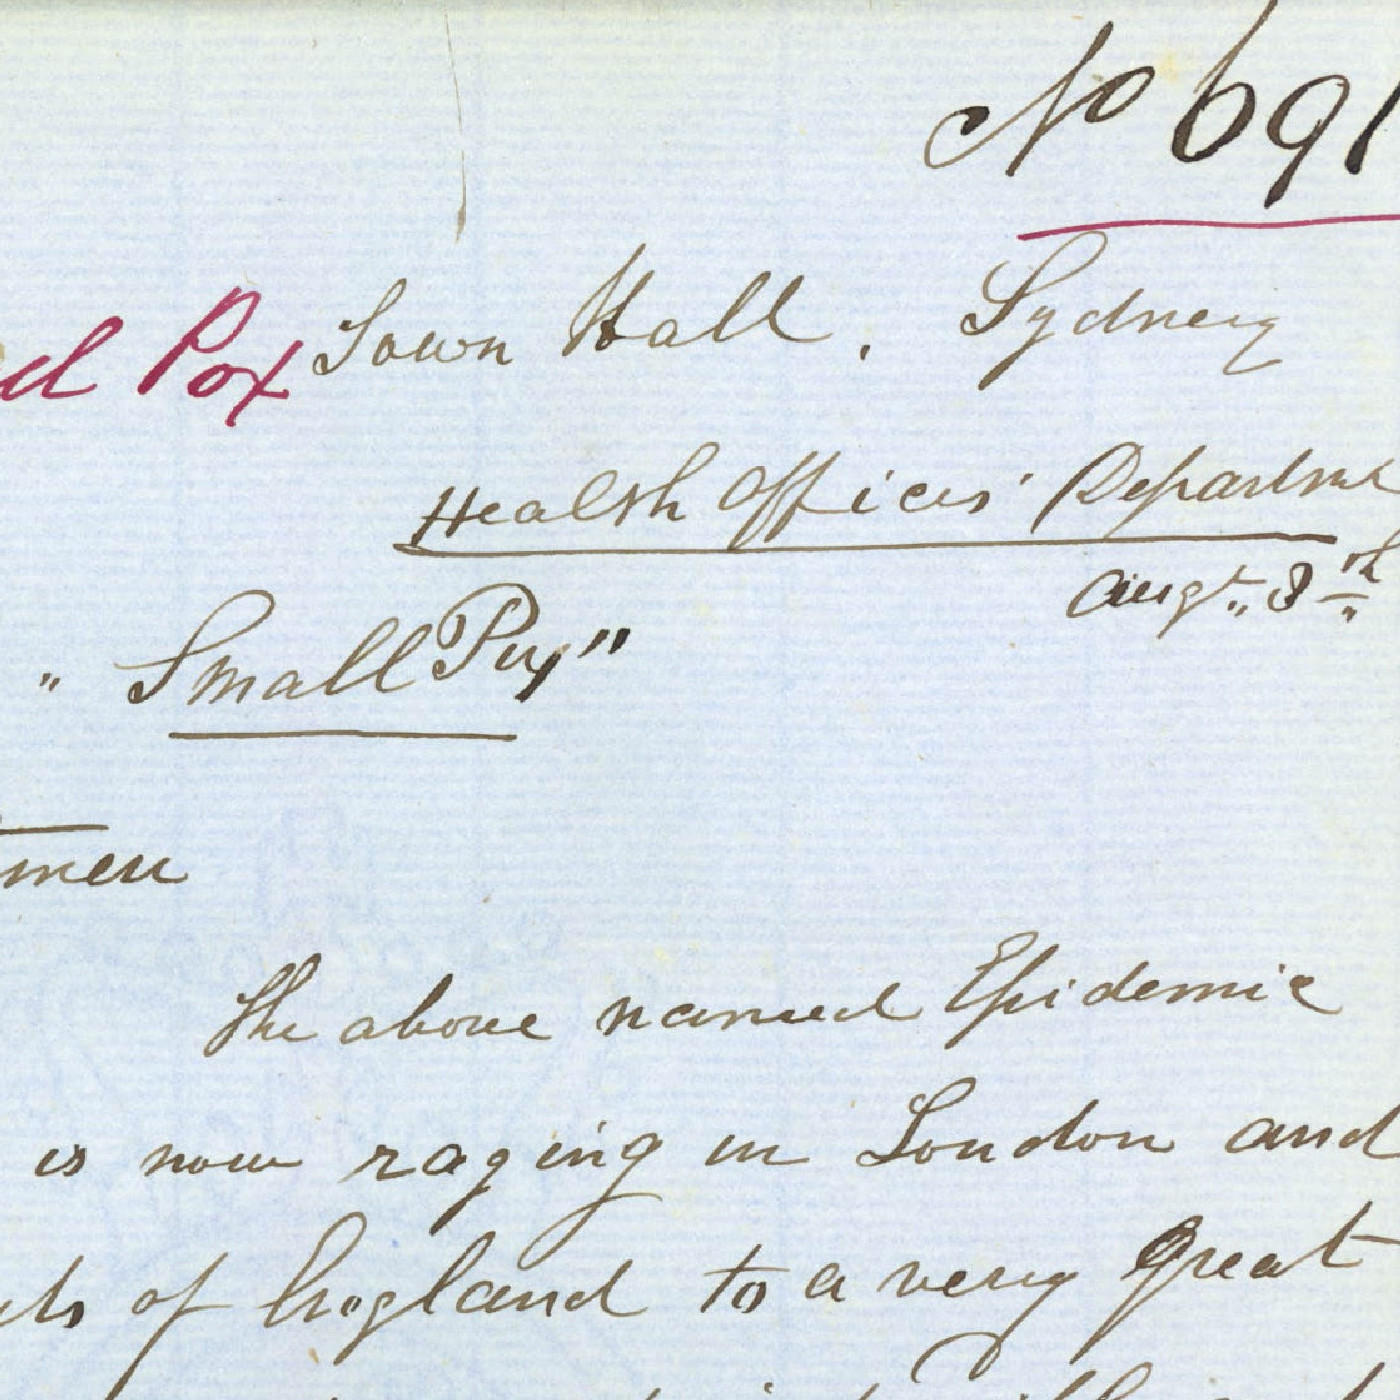 No 691
Pox Town Hall. Sydney
Health Officers' Departme
Augt. 8th
" Small Pox"
men
The above named Epidemic
is now raging in London and
of England to a very great